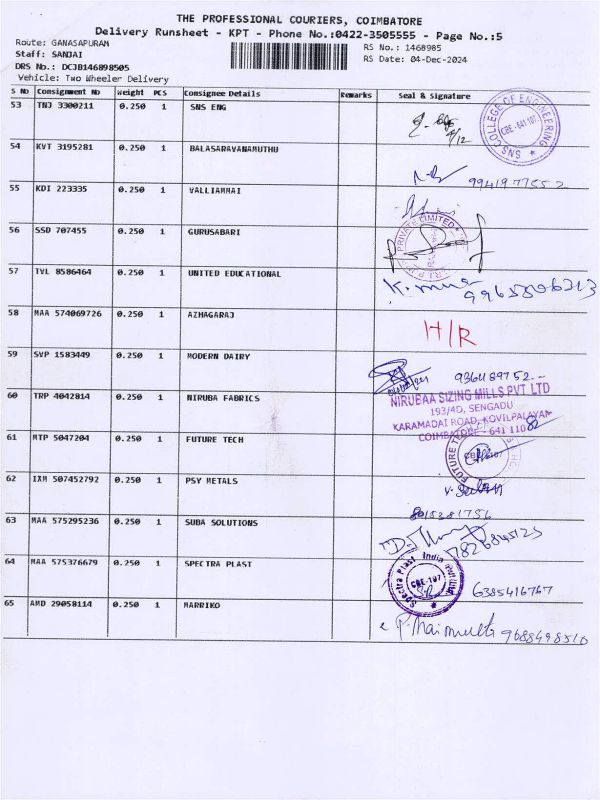 THE PROFESSIONAL COURIERS, COIMBATORE
Delivery Runsheet - KPT - Phone No.:0422-3505555 - Page No.:5
Route: GANASAPURAM
Staff: SANJAI
DRS No.: DCJB146898505
Vehicle: Two Wheeler Delivery
RS No.: 1468985
RS Date: 04-Dec-2024
S No Consignment No Weight PCS Consignee Details Remarks Seal & Signature
53 TNJ 3300211 0.250 1 SNS ENG
SNS COLLEGE OF ENGINEERING CBE - 641 107
54 KVT 3195281 0.250 1 BALASARAVANAMUTHU
9941977552
55 KDI 223335 0.250 1 VALLIAMMAI
56 SSD 707455 0.250 1 GURUSABARI
PRIVATE LIMITED
57 TVL 8586464 0.250 1 UNITED EDUCATIONAL
58 MAA 574069726 0.250 1 AZHAGARAJ
H/R
59 SVP 1583449 0.250 1 MODERN DAIRY
60 TRP 4042814 0.250 1 NIRUBA FABRICS
NIRUBAA SIZING MILLS PVT LTD
193/4D, SENGADU
KARAMADAI ROAD, KOVILPALAYAM
COIMBATORE - 641 110
61 MTP 5047204 0.250 1 FUTURE TECH
62 IXM 507452792 0.250 1 PSY METALS
63 MAA 575295236 0.250 1 SUBA SOLUTIONS
7826845123
64 MAA 575376679 0.250 1 SPECTRA PLAST
Spectra Plast India CBE-107
6385416767
65 AMD 29058114 0.250 1 MARRIKO
9688498510